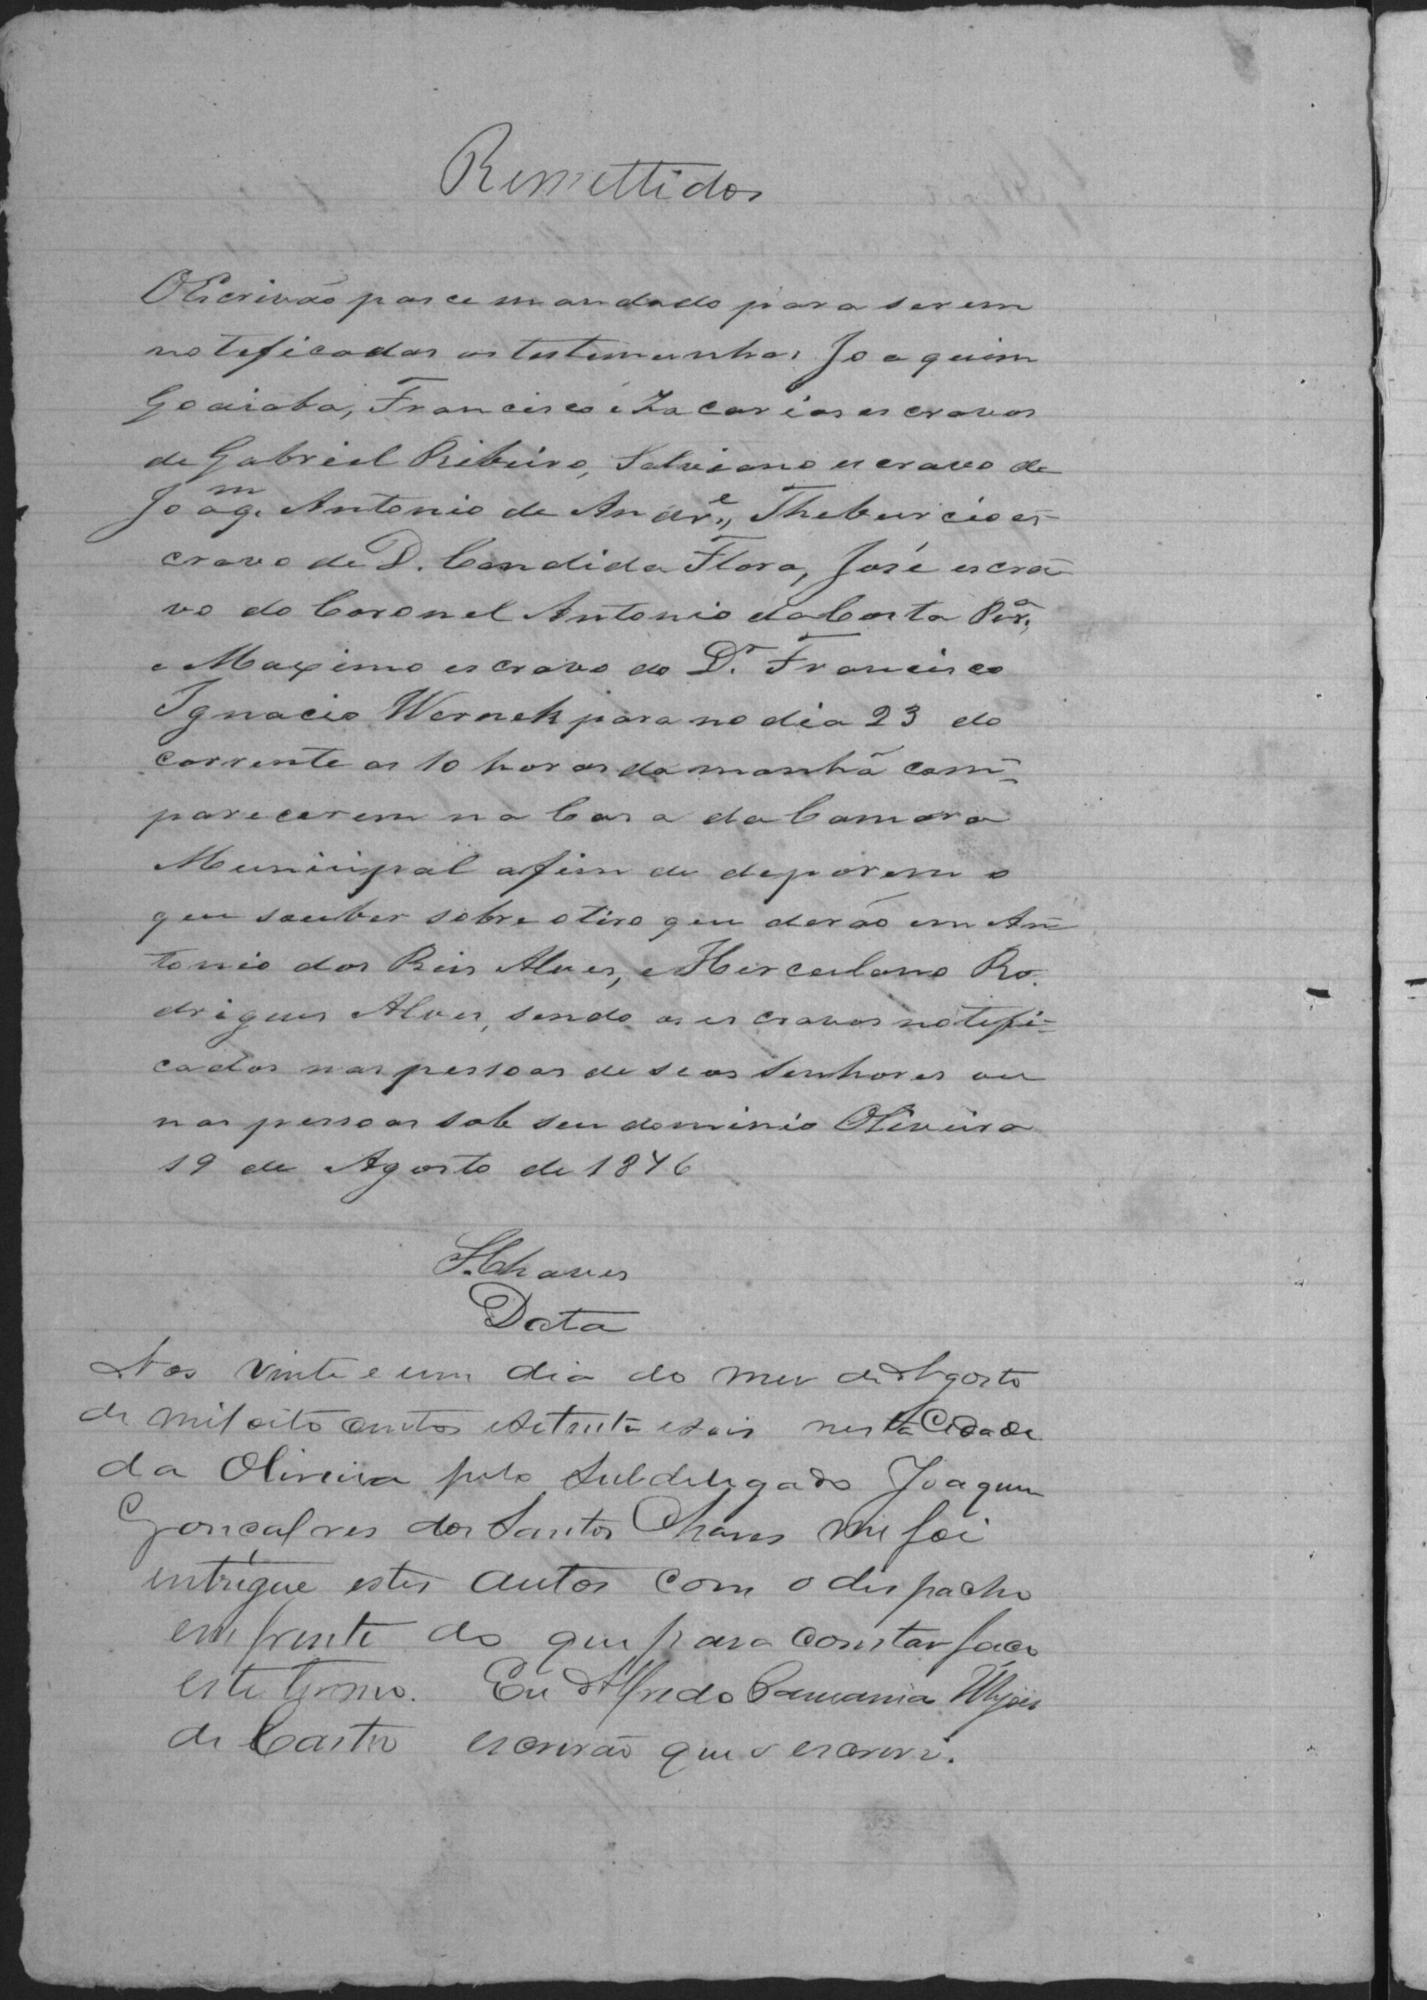 Remettidos
O Escrivão passe mandado para serem
noteficadas as testemunhas Joaquim
Goaiaba, Francisco e Zacarias escravos
de Gabriel Ribeiro, Salviano escravo de
Joaqm. Antonio de Andre., Theburcio es-
cravo de D. Candida Flora, José escra-
vo do Coronel Antonio da Costa Pera.
e Maximo escravo do Dr. Francisco
Ignacio Wernek para no dia 23 do
corrente as 10 horas da manhã com-
parecerem na Casa da Camara
Municipal afim de deporem o
que souber sobre o tiro que darão em An-
tonio dos Reis Alves, e Herculano Ro-
drigues Alves, sendo os escravos notifi-
cados nas pessoas de seos senhores ou
nas pessoas sob seu dominio Oliveira
19 de Agosto de 1876
S. Chaves
Data
Aos vinte e um dia do mez de Agosto
de mil oito centos e setenta e seis nesta Cidade
da Oliveira pelo Subdelegado Joaquim
Gonçalves dos Santos Chaves me foi
entregue estes autos com o despacho
em frente do que para constar faço
este termo. Eu Alfredo
de Castro escrivão que o escrevi.